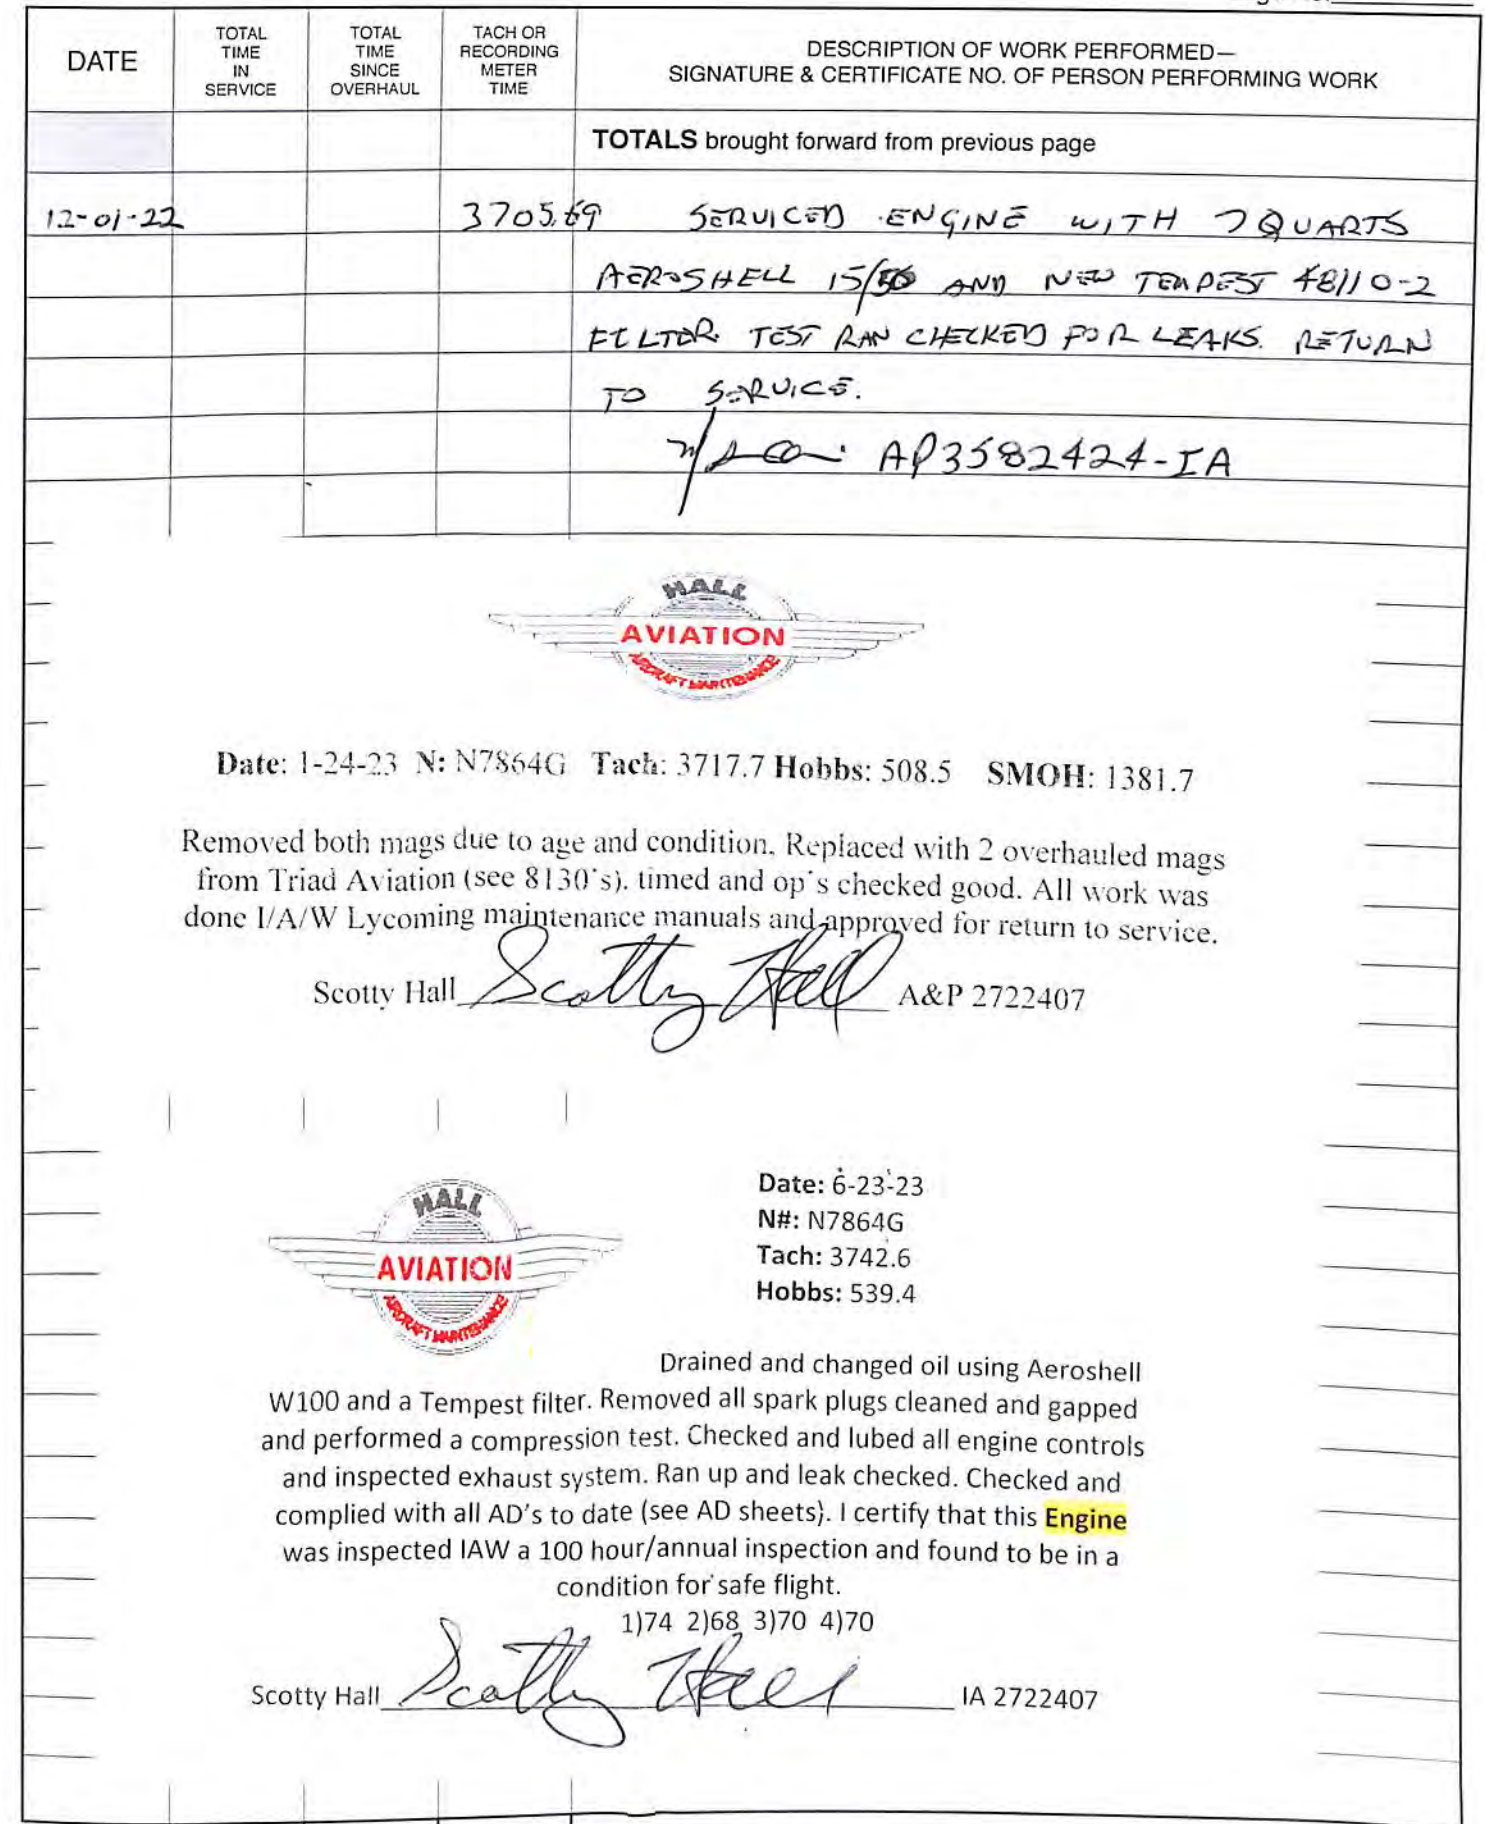 DATE
TOTAL TIME IN SERVICE
TOTAL TIME SINCE OVERHAUL
TACH OR RECORDING METER TIME
DESCRIPTION OF WORK PERFORMED—
SIGNATURE & CERTIFICATE NO. OF PERSON PERFORMING WORK
TOTALS brought forward from previous page
12-01-22 3705.69 SERVICED ENGINE WITH 7 QUARTS
AEROSHELL 15/50 AND NEW TEMPEST 48110-2
FILTER. TEST RAN CHECKED FOR LEAKS. RETURN
TO SERVICE.
AP3582424-IA
HALL
AVIATION
AIRCRAFT MAINTENANCE
Date: 1-24-23 N: N7864G Tach: 3717.7 Hobbs: 508.5 SMOH: 1381.7
Removed both mags due to age and condition. Replaced with 2 overhauled mags
from Triad Aviation (see 8130's). timed and op's checked good. All work was
done I/A/W Lycoming maintenance manuals and approved for return to service.
Scotty Hall Scotty Hall A&P 2722407
HALL
AVIATION
AIRCRAFT MAINTENANCE
Date: 6-23-23
N#: N7864G
Tach: 3742.6
Hobbs: 539.4
Drained and changed oil using Aeroshell
W100 and a Tempest filter. Removed all spark plugs cleaned and gapped
and performed a compression test. Checked and lubed all engine controls
and inspected exhaust system. Ran up and leak checked. Checked and
complied with all AD's to date (see AD sheets). I certify that this Engine
was inspected IAW a 100 hour/annual inspection and found to be in a
condition for safe flight.
1)74 2)68 3)70 4)70
Scotty Hall Scotty Hall IA 2722407